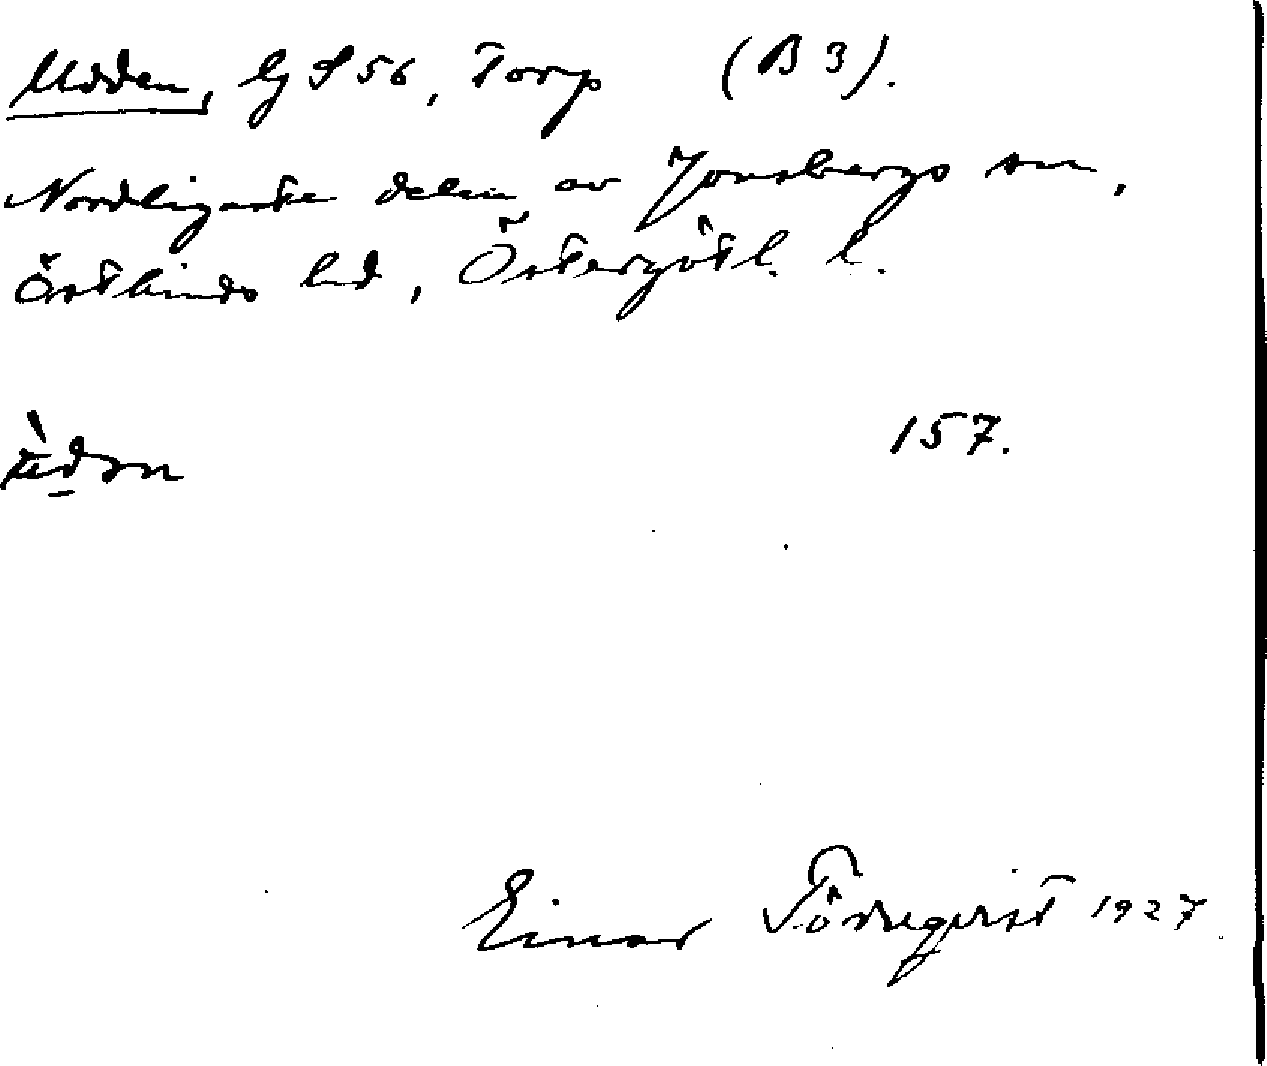 Udden, lg S 56, Torp (B 3).
Nordligaste delen av Jonsbergs sn,
Östkinds hd, Östergötl. l.
157.
Einar Törnqvist 1927